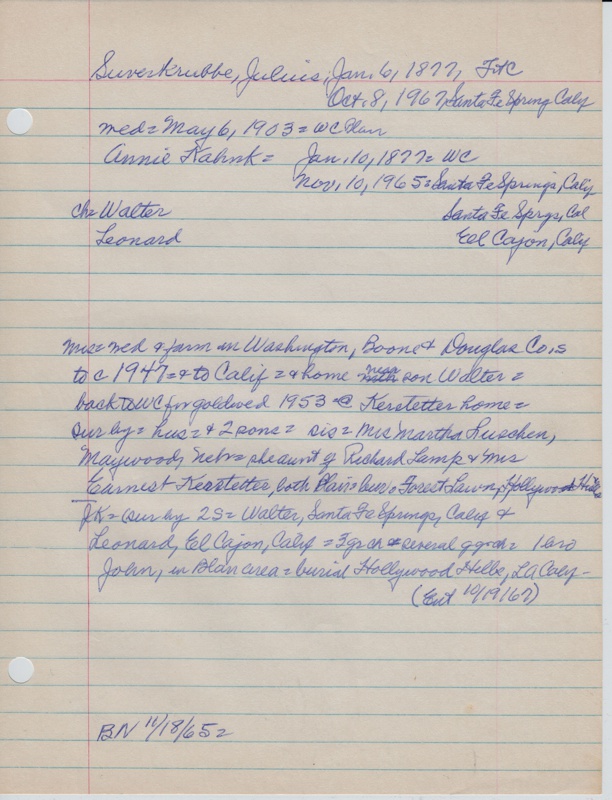 Suverkrubbe, Julius, Jan. 6, 1877, FtC
Oct. 8, 1967, Santa Fe Spring Caly
med = May 6, 1903 = WC Plan
Annie Kahnk = Jan. 10, 1877 = WC
Nov. 10, 1965 = Santa Fe Springs, Caly
ch = Walter Santa Fe Sprgs, Cal
Leonard El Cajon, Caly
mis = med & farm in Washington, Boone & Douglas Co.s
to c 1947 = & to Calif = & home near son Walter =
back to WC for goldwed 1953 @ Kerstetter home =
sur by = hus = & 2 sons = sis = Mrs Martha Ruschen,
Maywood, Nebr = she aunt of Richard Lamp & Mrs
Earnest Kerstetter, both Blair = bur = Forest Lawn, Hollywood Hills
JK = sur by 2S = Walter, Santa Fe Springs, Calif &
Leonard, El Cajon, Calif = 3 grch & several ggrch = 1 bro
John, in Blair area = burial Hollywood Hills, LA Caly -
(Ent 10/19/67)
BN 11/18/65 =